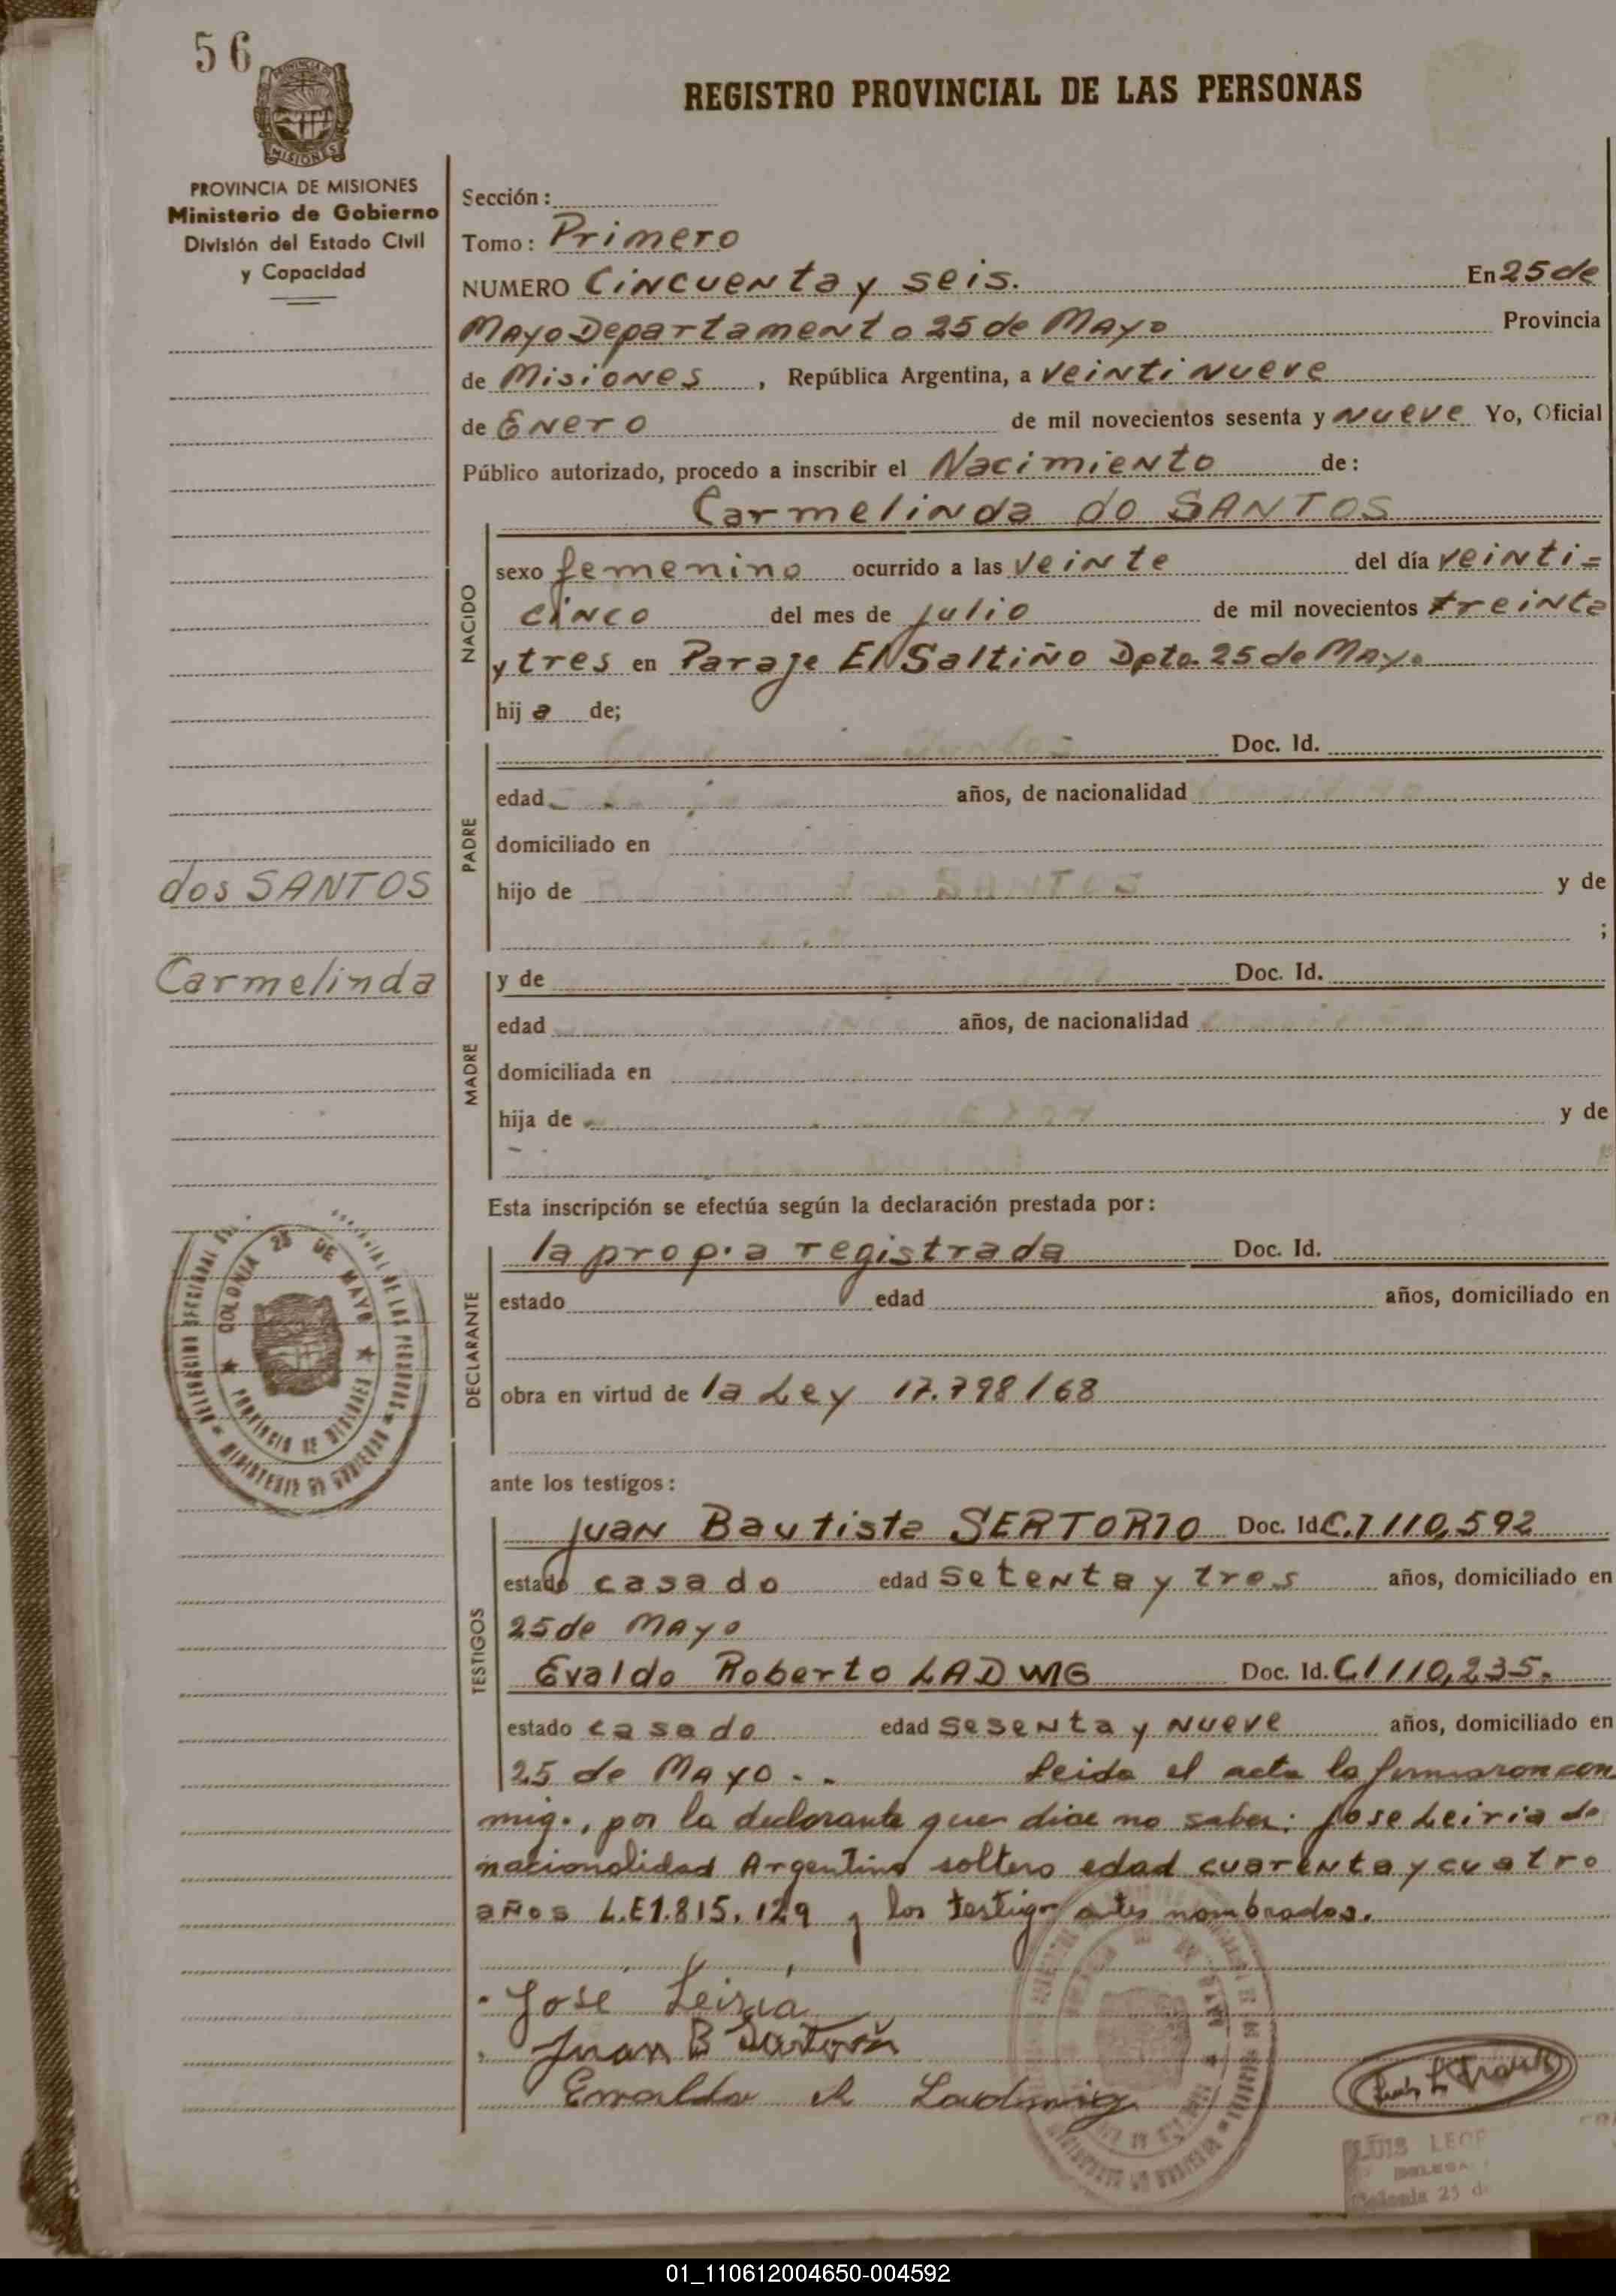 56
PROVINCIA DE MISIONES
REGISTRO PROVINCIAL DE LAS PERSONAS
PROVINCIA DE MISIONES
Ministerio de Gobierno
División del Estado Civil
y Capacidad
Sección:
Tomo: Primero
NUMERO Cincuenta y seis. En 25 de
Mayo Departamento 25 de Mayo Provincia
de Misiones, República Argentina, a veintinueve
de Enero de mil novecientos sesenta y nueve Yo, Oficial
Público autorizado, procedo a inscribir el Nacimiento de:
Carmelinda do SANTOS
NACIDO
sexo femenino ocurrido a las veinte del día veinti=
cinco del mes de julio de mil novecientos treinta
y tres en Paraje El Saltiño Dpto. 25 de Mayo
hija de;
PADRE
Doc. Id.
edad años, de nacionalidad
domiciliado en
hijo de y de
;
dos SANTOS
Carmelinda
MADRE
y de Doc. Id.
edad años, de nacionalidad
domiciliada en
hija de y de
Esta inscripción se efectúa según la declaración prestada por:
DECLARANTE
la propia registrada Doc. Id.
estado edad años, domiciliado en
obra en virtud de la Ley 17.798/68
COLONIA 25 DE MAYO
PROVINCIA DE MISIONES
MINISTERIO DE GOBIERNO
ante los testigos:
TESTIGOS
Juan Bautista SERTORIO Doc. Id C.I 110,592
estado casado edad setenta y tres años, domiciliado en
25 de Mayo
Evaldo Roberto LADWIG Doc. Id. C.I 110,235.
estado casado edad sesenta y nueve años, domiciliado en
25 de Mayo.. Leida el acta la firmaron con
migo, por la declarante que dice no saber: Jose Leiria de
nacionalidad Argentino soltero edad cuarenta y cuatro
años L.E 1.815.129 y los testigos antes nombrados.
José Leiria
Juan B Sertorio
Evaldo R Ladwig
LUIS LEOP
DELEGA
Colonia 25 de
01_110612004650-004592